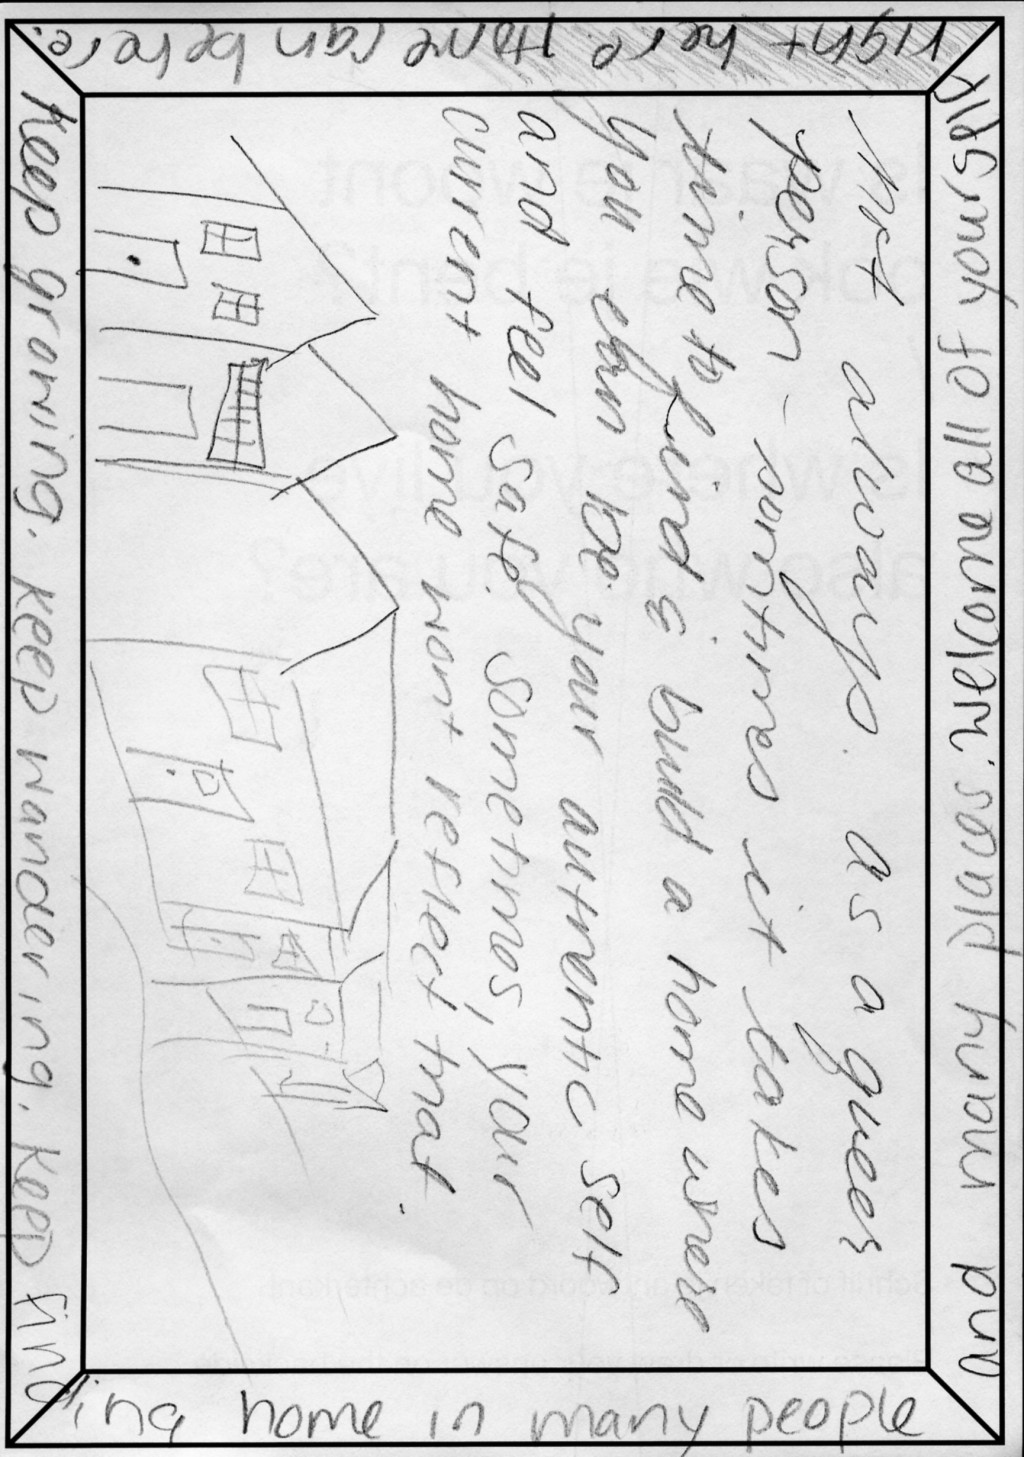 Not always. as a queer
person - somtimes it takes
time to find & build a home where
you can be your authentic self
and feel safe. Sometimes, your
current home wont reflect that.
Keep growing. Keep wandering. Keep find
ing home in many people
and many places. Welcome all of yourself
right here. Home can be here.